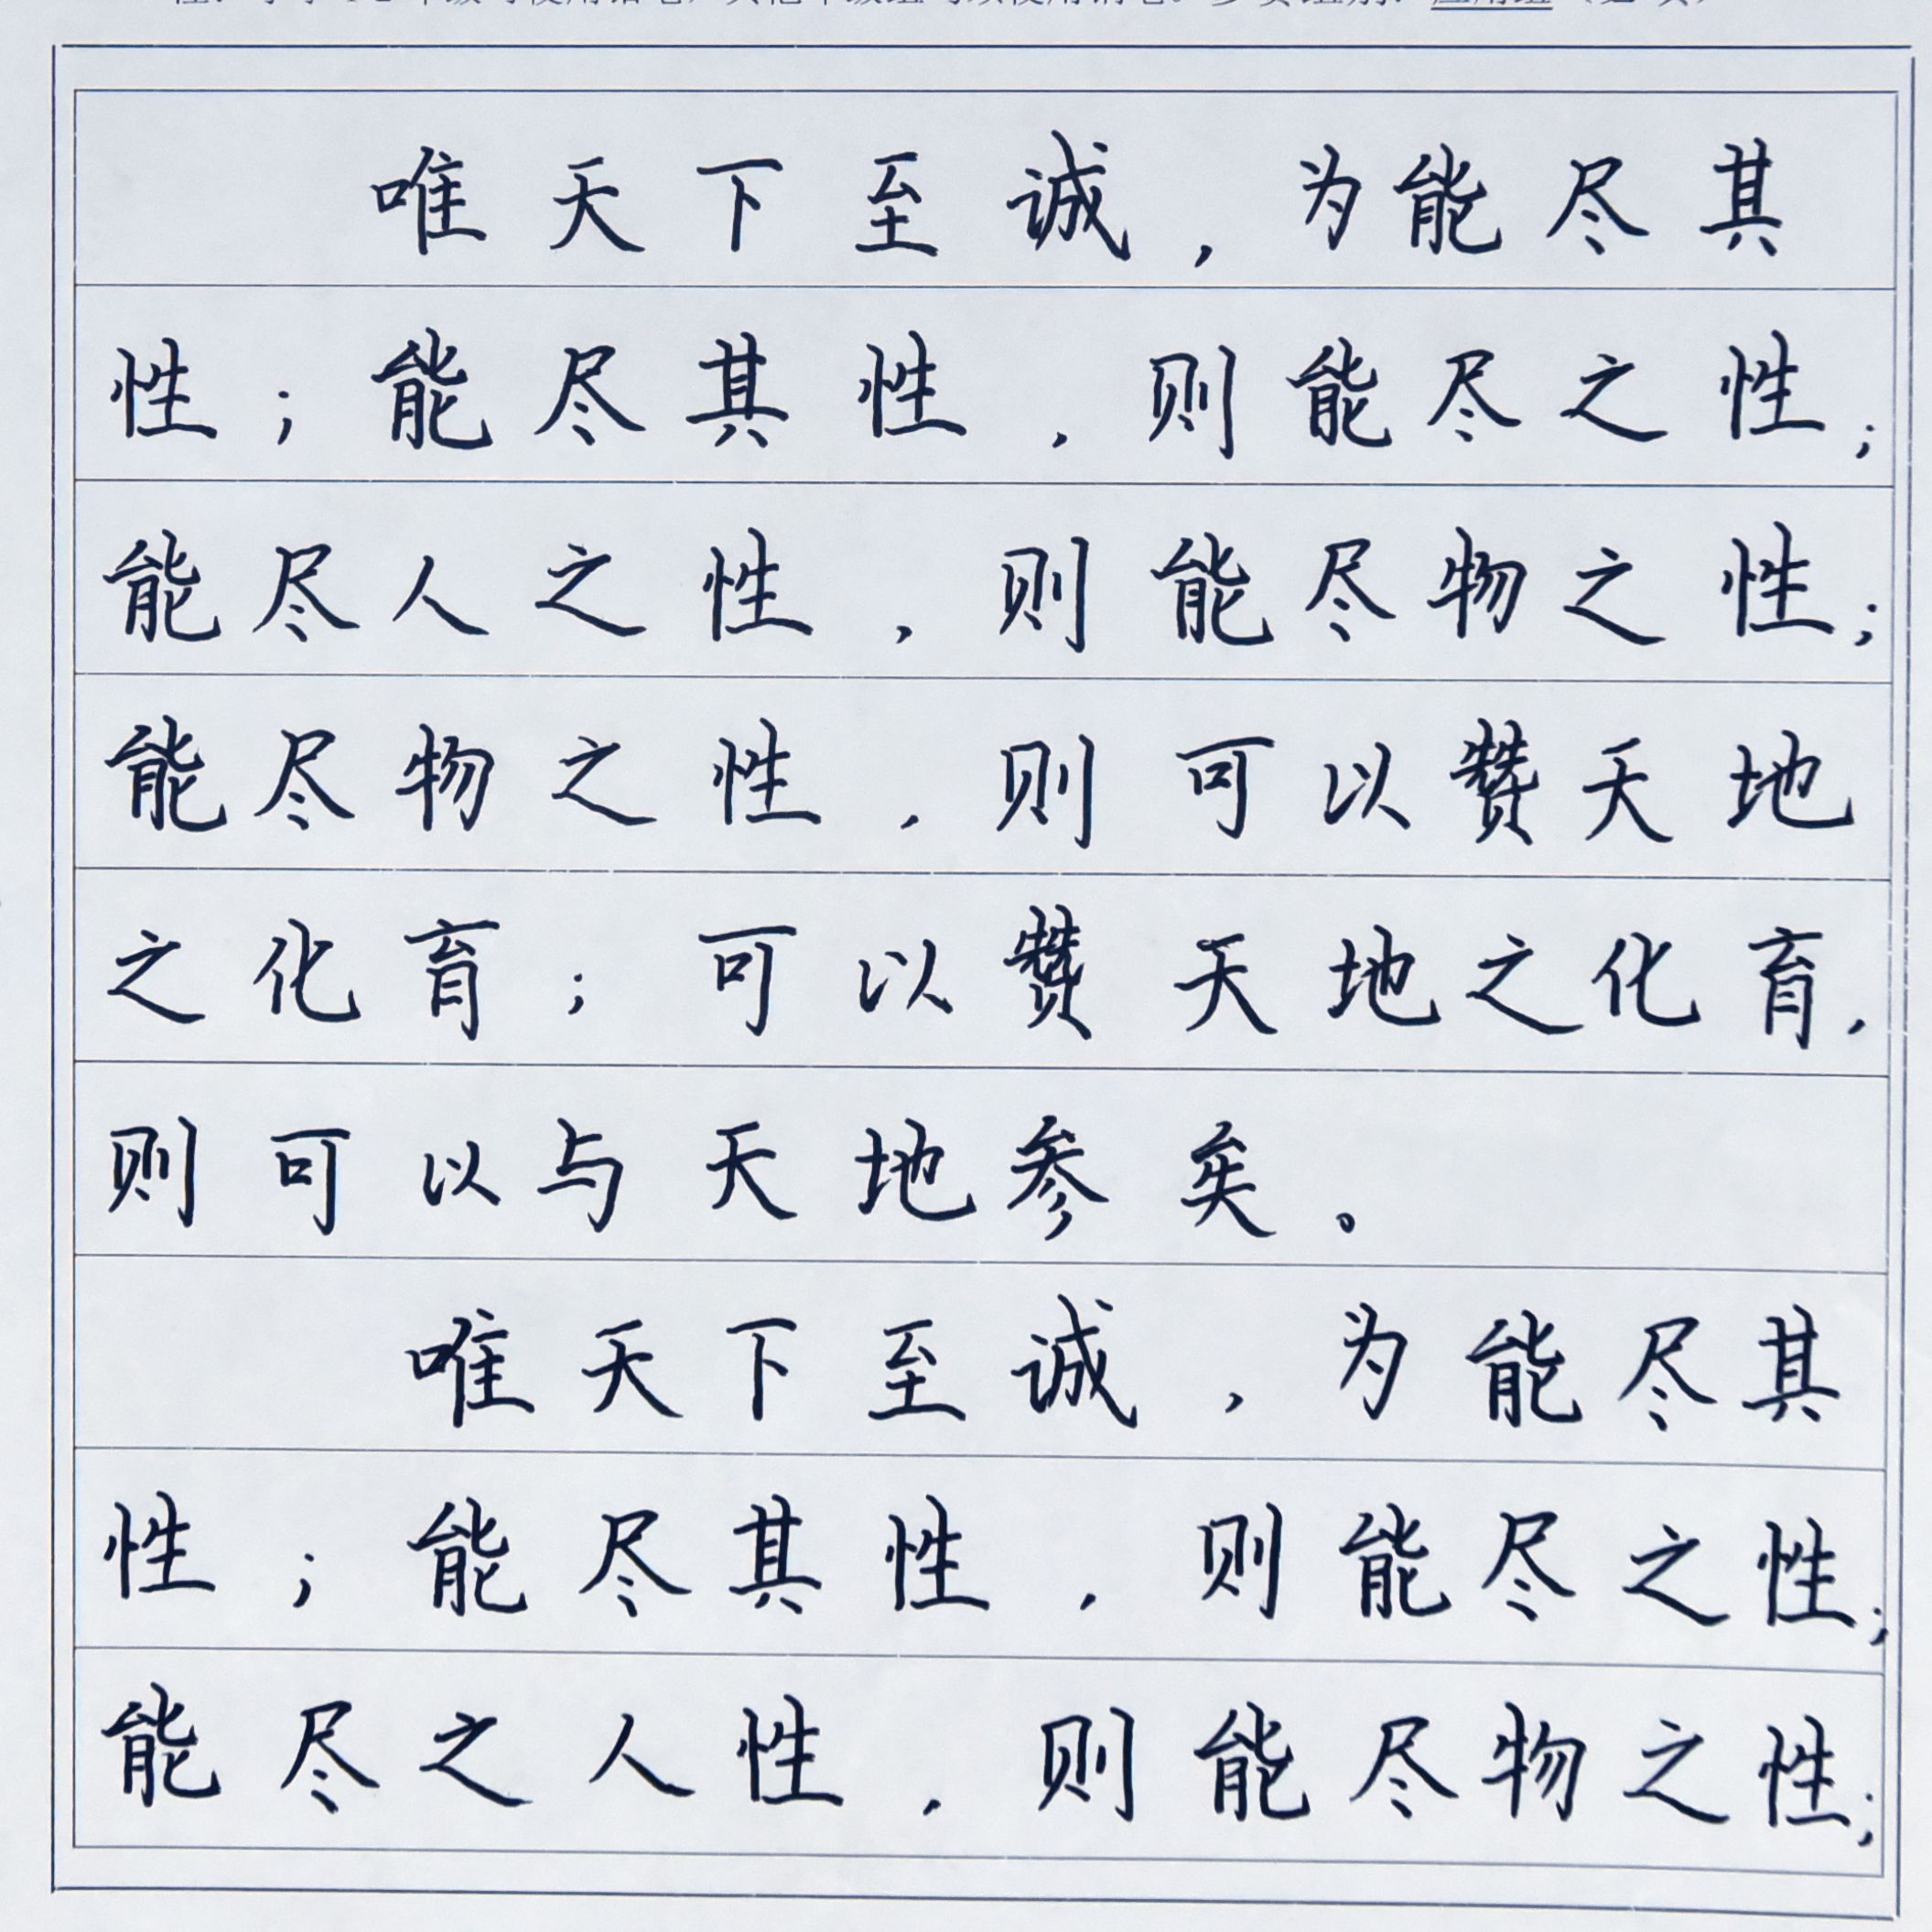 唯天下至诚，为能尽其
性；能尽其性，则能尽之性；
能尽人之性，则能尽物之性；
能尽物之性，则可以赞天地
之化育；可以赞天地之化育，
则可以与天地参矣。
唯天下至诚，为能尽其
性；能尽其性，则能尽之性；
能尽之人性，则能尽物之性；